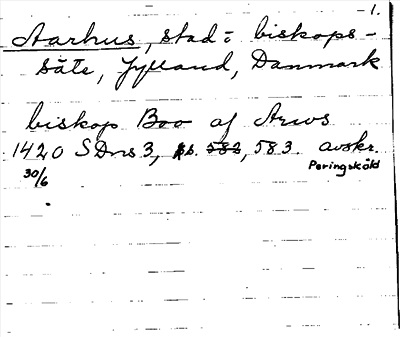 -1.
Aarhus, stad = biskops-
säte, Jylland, Danmark
biskop Boo af Arus
1420 SDns 3, s. 582, 583. avskr.
30/6 Peringsköld